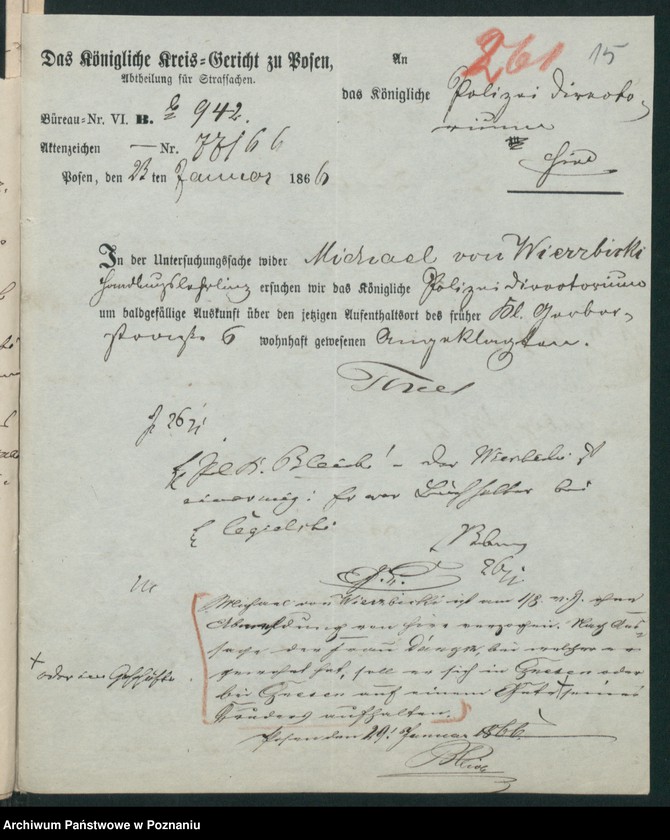 261 15
Das Königliche Kreis-Gericht zu Posen,
Abtheilung für Strafsachen.
An
das Königliche Polizei Directo-
rium
hier
Büreau-Nr. VI. B. 942.
Aktenzeichen — Nr. 77166
Posen, den 23 ten Januar 1866
In der Untersuchungssache wider Michael von Wierzbicki
Handlungslehrling ersuchen wir das Königliche Polizei directorium
um baldgefällige Auskunft über den jetzigen Aufenthaltsort des früher Kl. Gerber-
straße 6 wohnhaft gewesenen Angeklagten.
26/1
Der
ist
Er war Buchhalter bei
Cegielski
26/1
Michael von Wierzbicki ist am 1/8. v. J. ohne
Abmeldung von hier verzogen. Nach Aus-
sage der Frau bei welcher er
gewohnt hat, soll er sich in Gnesen oder
bei Gnesen auf einem Gute + seines
Bruders aufhalten.
+ oder im Geschäfte
Posen den 29. Januar 1866.
Archiwum Państwowe w Poznaniu